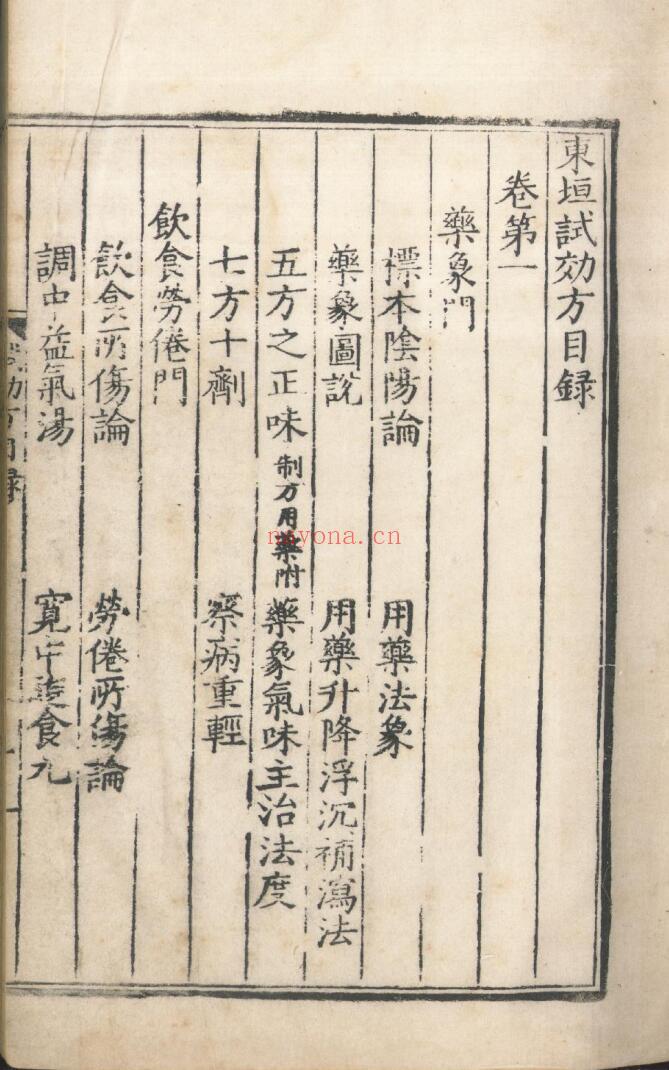 東垣試効方目録
卷第一
藥象門
標本陰陽論 用藥法象
藥象圖說 用藥升降浮沉補瀉法
五方之正味 制方用藥附 藥象氣味主治法度
七方十劑 察病重輕
飲食勞倦門
飲食所傷論 勞倦所傷論
調中益氣湯 寬中進食丸
nayona.cn